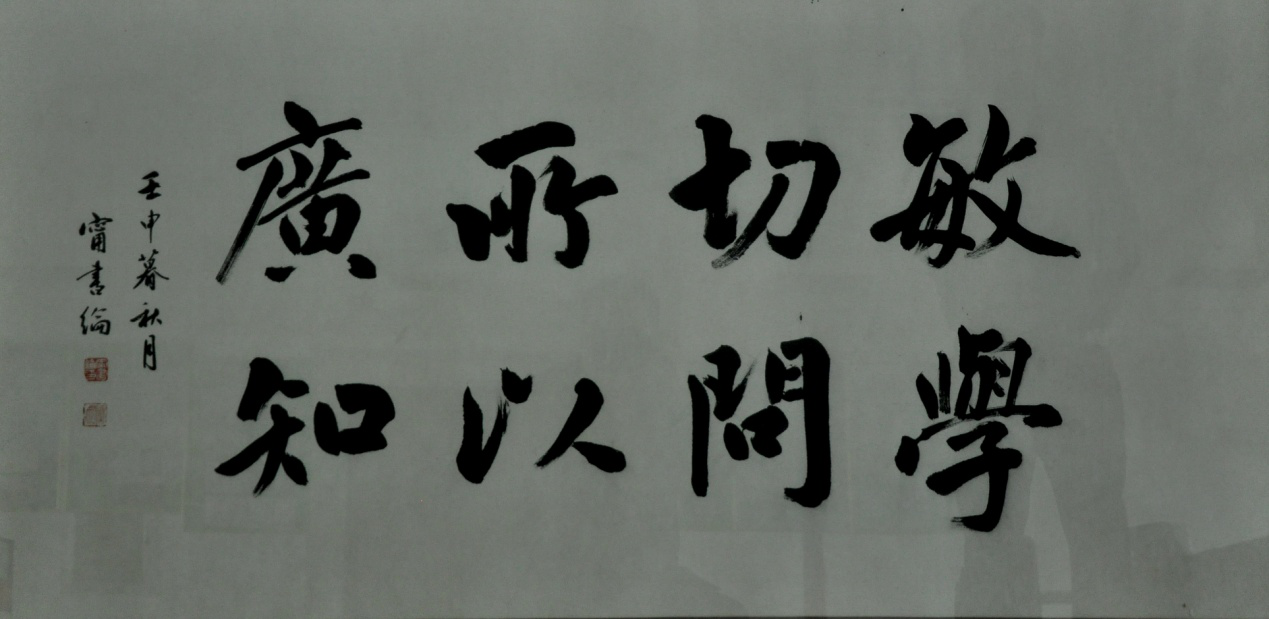 敏學
切問
所以
廣知
壬申暮秋月
甯書綸